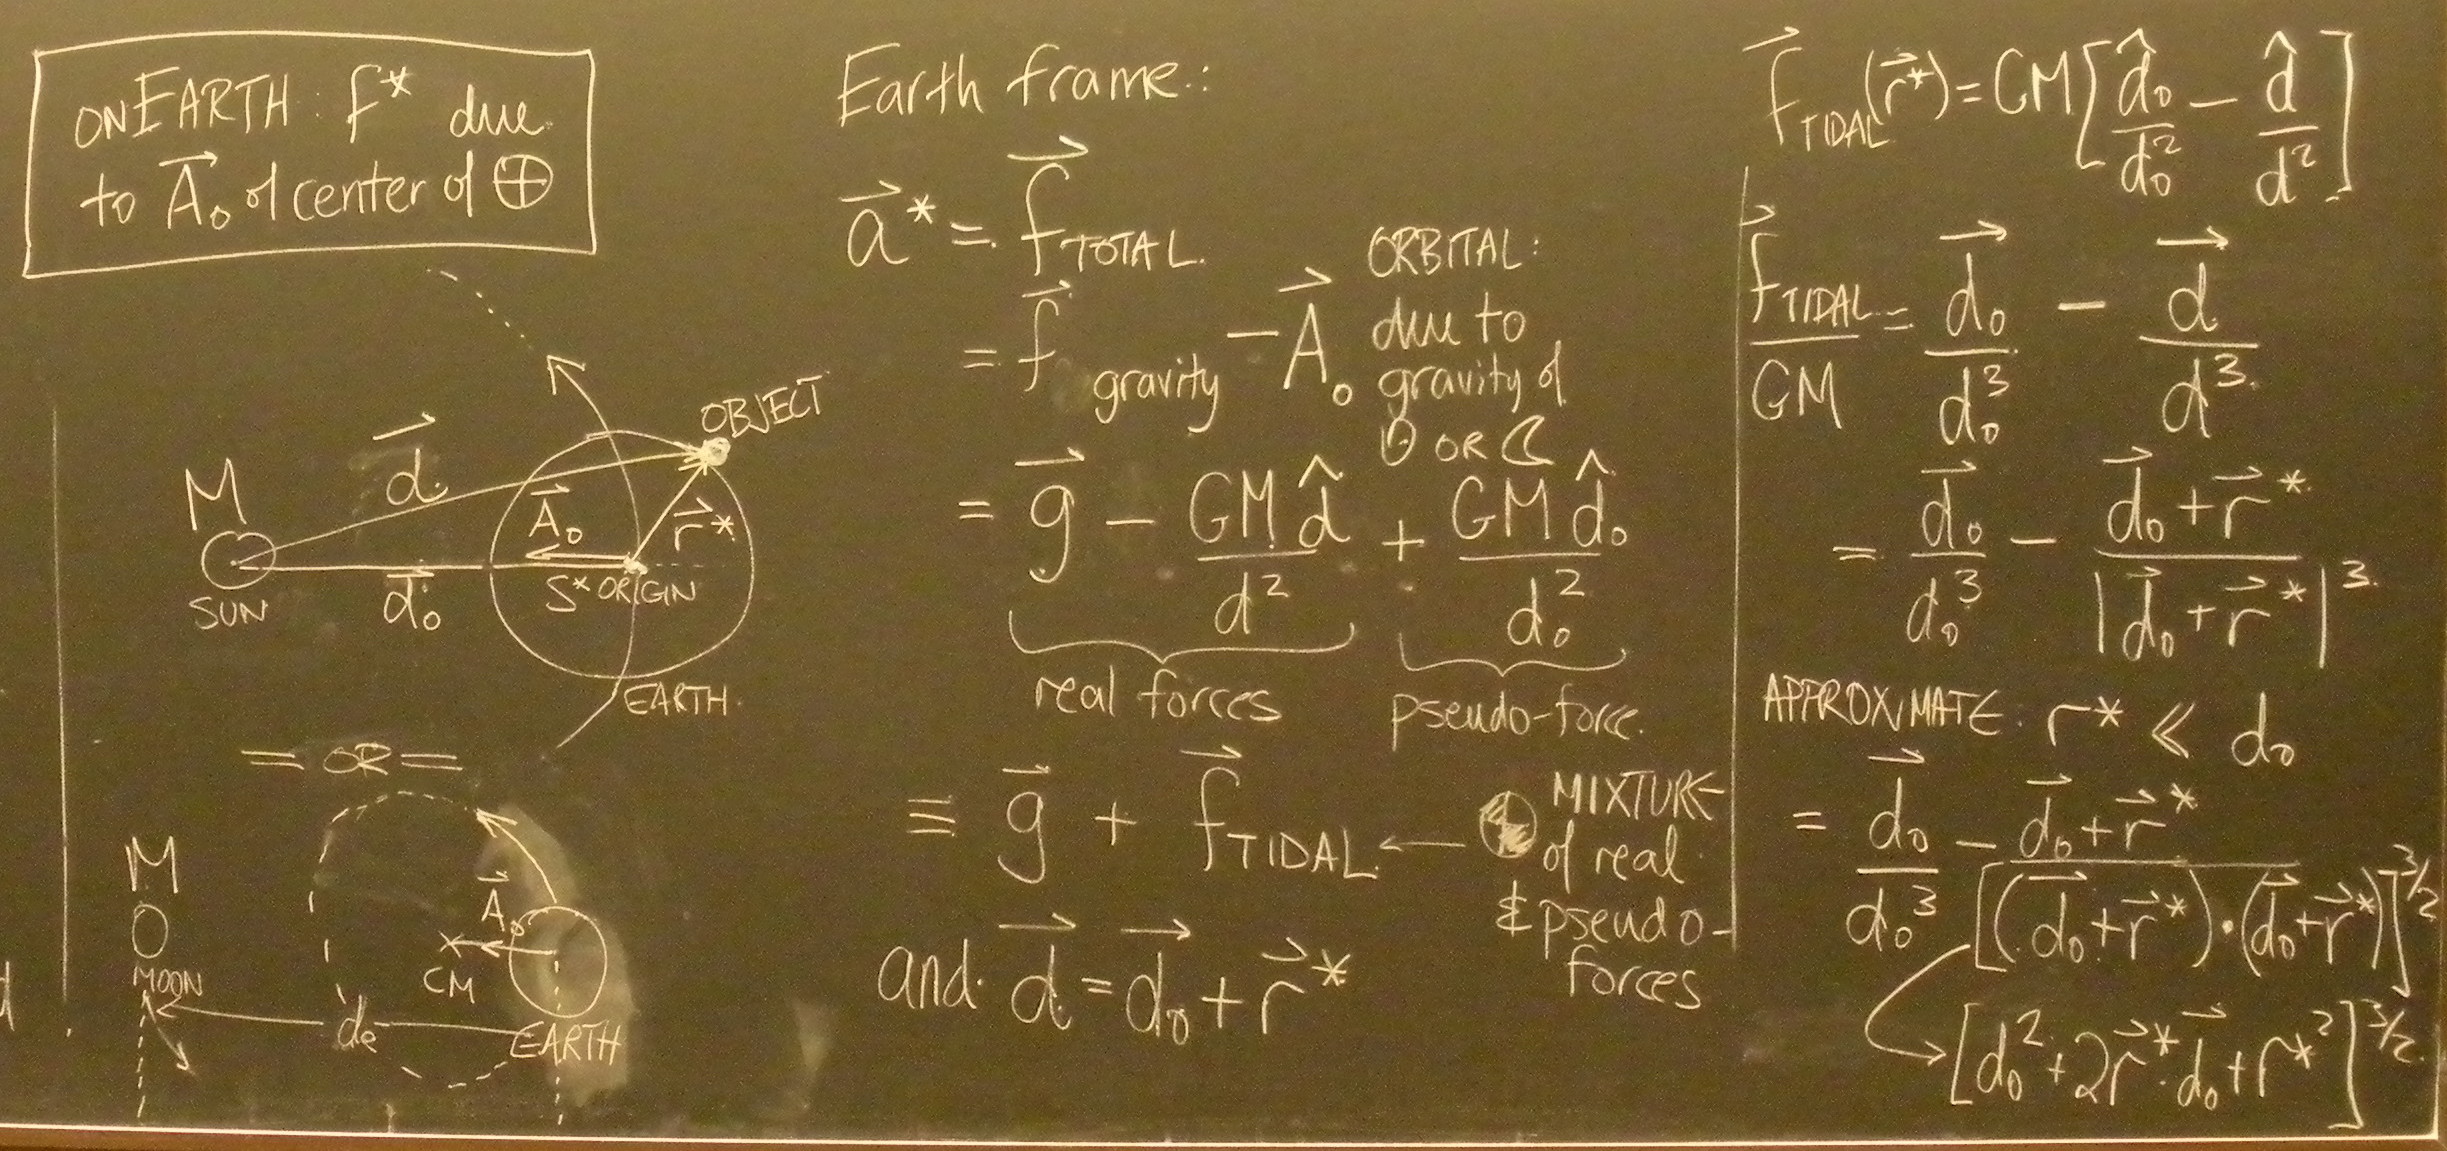 ONEARTH: f* due
to A⃗₀ of center of ⊕
M
d⃗
OBJECT
A⃗₀
r⃗*
SUN
d⃗₀
S* ORIGIN
EARTH.
= OR =
M
MOON
A⃗₀
CM
d₀
EARTH
Earth frame:
a⃗* = f⃗TOTAL.
= f⃗gravity - A⃗₀
ORBITAL:
due to
gravity of
⊙ OR ☾
= g⃗ - GM d̂/d² + GM d̂₀/d₀²
real forces
pseudo-force.
≡ g⃗ + f⃗TIDAL. ←
MIXTURE
of real
& pseudo-
forces
and d⃗ = d⃗₀ + r⃗*
f⃗TIDAL(r⃗*) = GM[d̂₀/d₀² - d̂/d²]
f⃗TIDAL/GM = d⃗₀/d₀³ - d⃗/d³
= d⃗₀/d₀³ - (d⃗₀ + r⃗*)/|d⃗₀ + r⃗*|³
APPROXIMATE r* ≪ d₀
= d⃗₀/d₀³ - (d⃗₀ + r⃗*)/[(d⃗₀ + r⃗*)·(d⃗₀ + r⃗*)]^3/2
→ [d₀² + 2r⃗*·d⃗₀ + r*²]^3/2